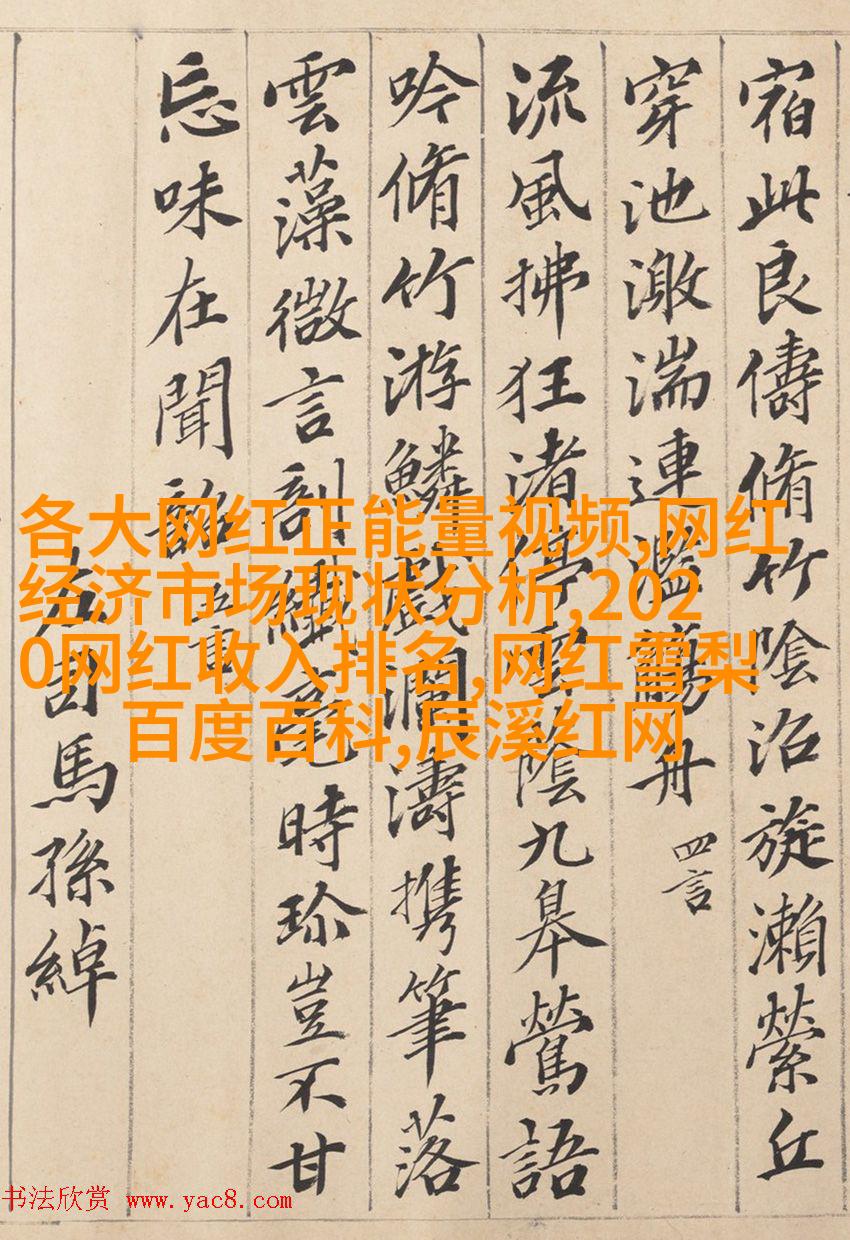 宿此良儔脩竹陰沼旋瀨縈丘
穿池激湍連濫觴舟 四言
流風拂狂渚停雲蔭九皋鶯語
吟脩竹游鱗戲瀾濤携筆落
雲藻微言剖纖毫時珎豈不甘
忘味在聞韶 五言
左司馬孫綽
各大网红正能量视频,网红
经济市场现状分析,202
0网红收入排名,网红雪梨
百度百科,辰溪红网
书法欣赏 www.yac8.com